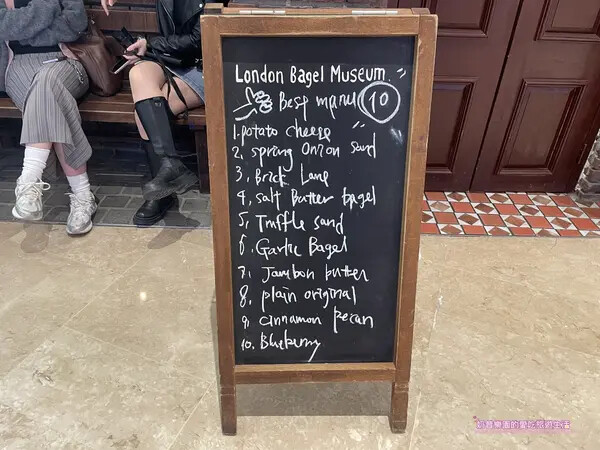 London Bagel Museum."
Besp manu 10
1. potato cheese "
2. spring onion Sand
3. Brick Lane
4. Salt Butter bagel
5. Truffle sand
6. Garlic Bagel
7. Jambon butter
8. plain original
9. cinnamon pecan
10. Blueberry
妞爸樂團的愛吃旅遊生活